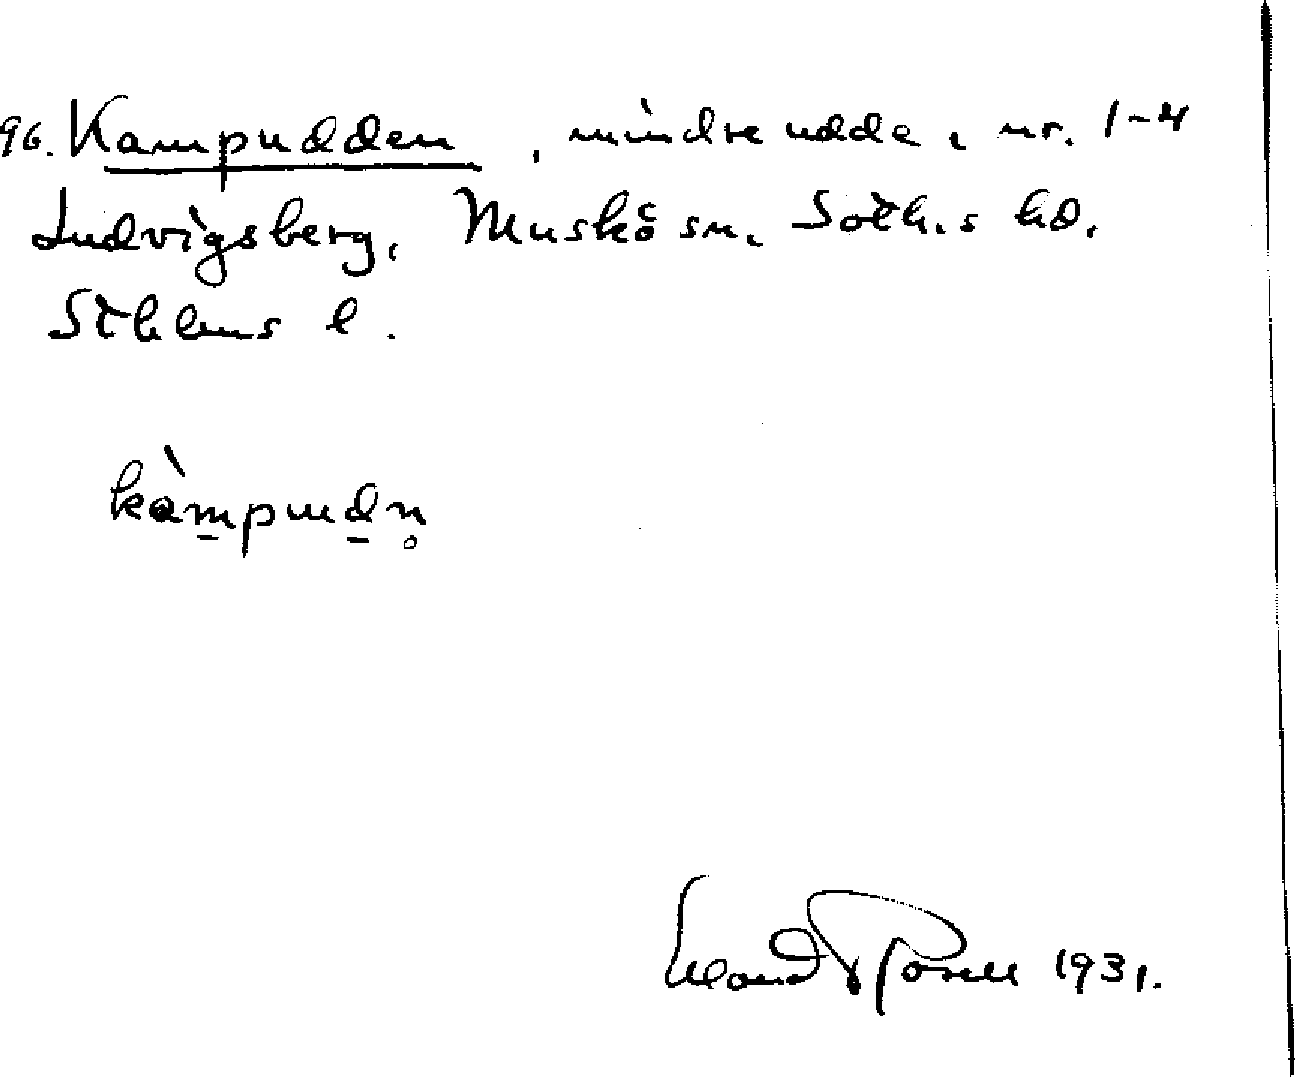 96. Kampudden, mindre udde, nr. 1-4
Ludvigsberg, Muskö sn. Soth.s hd.
Sthlms l.
kàm̲pud̲n̥
Eland Rosell 1931.